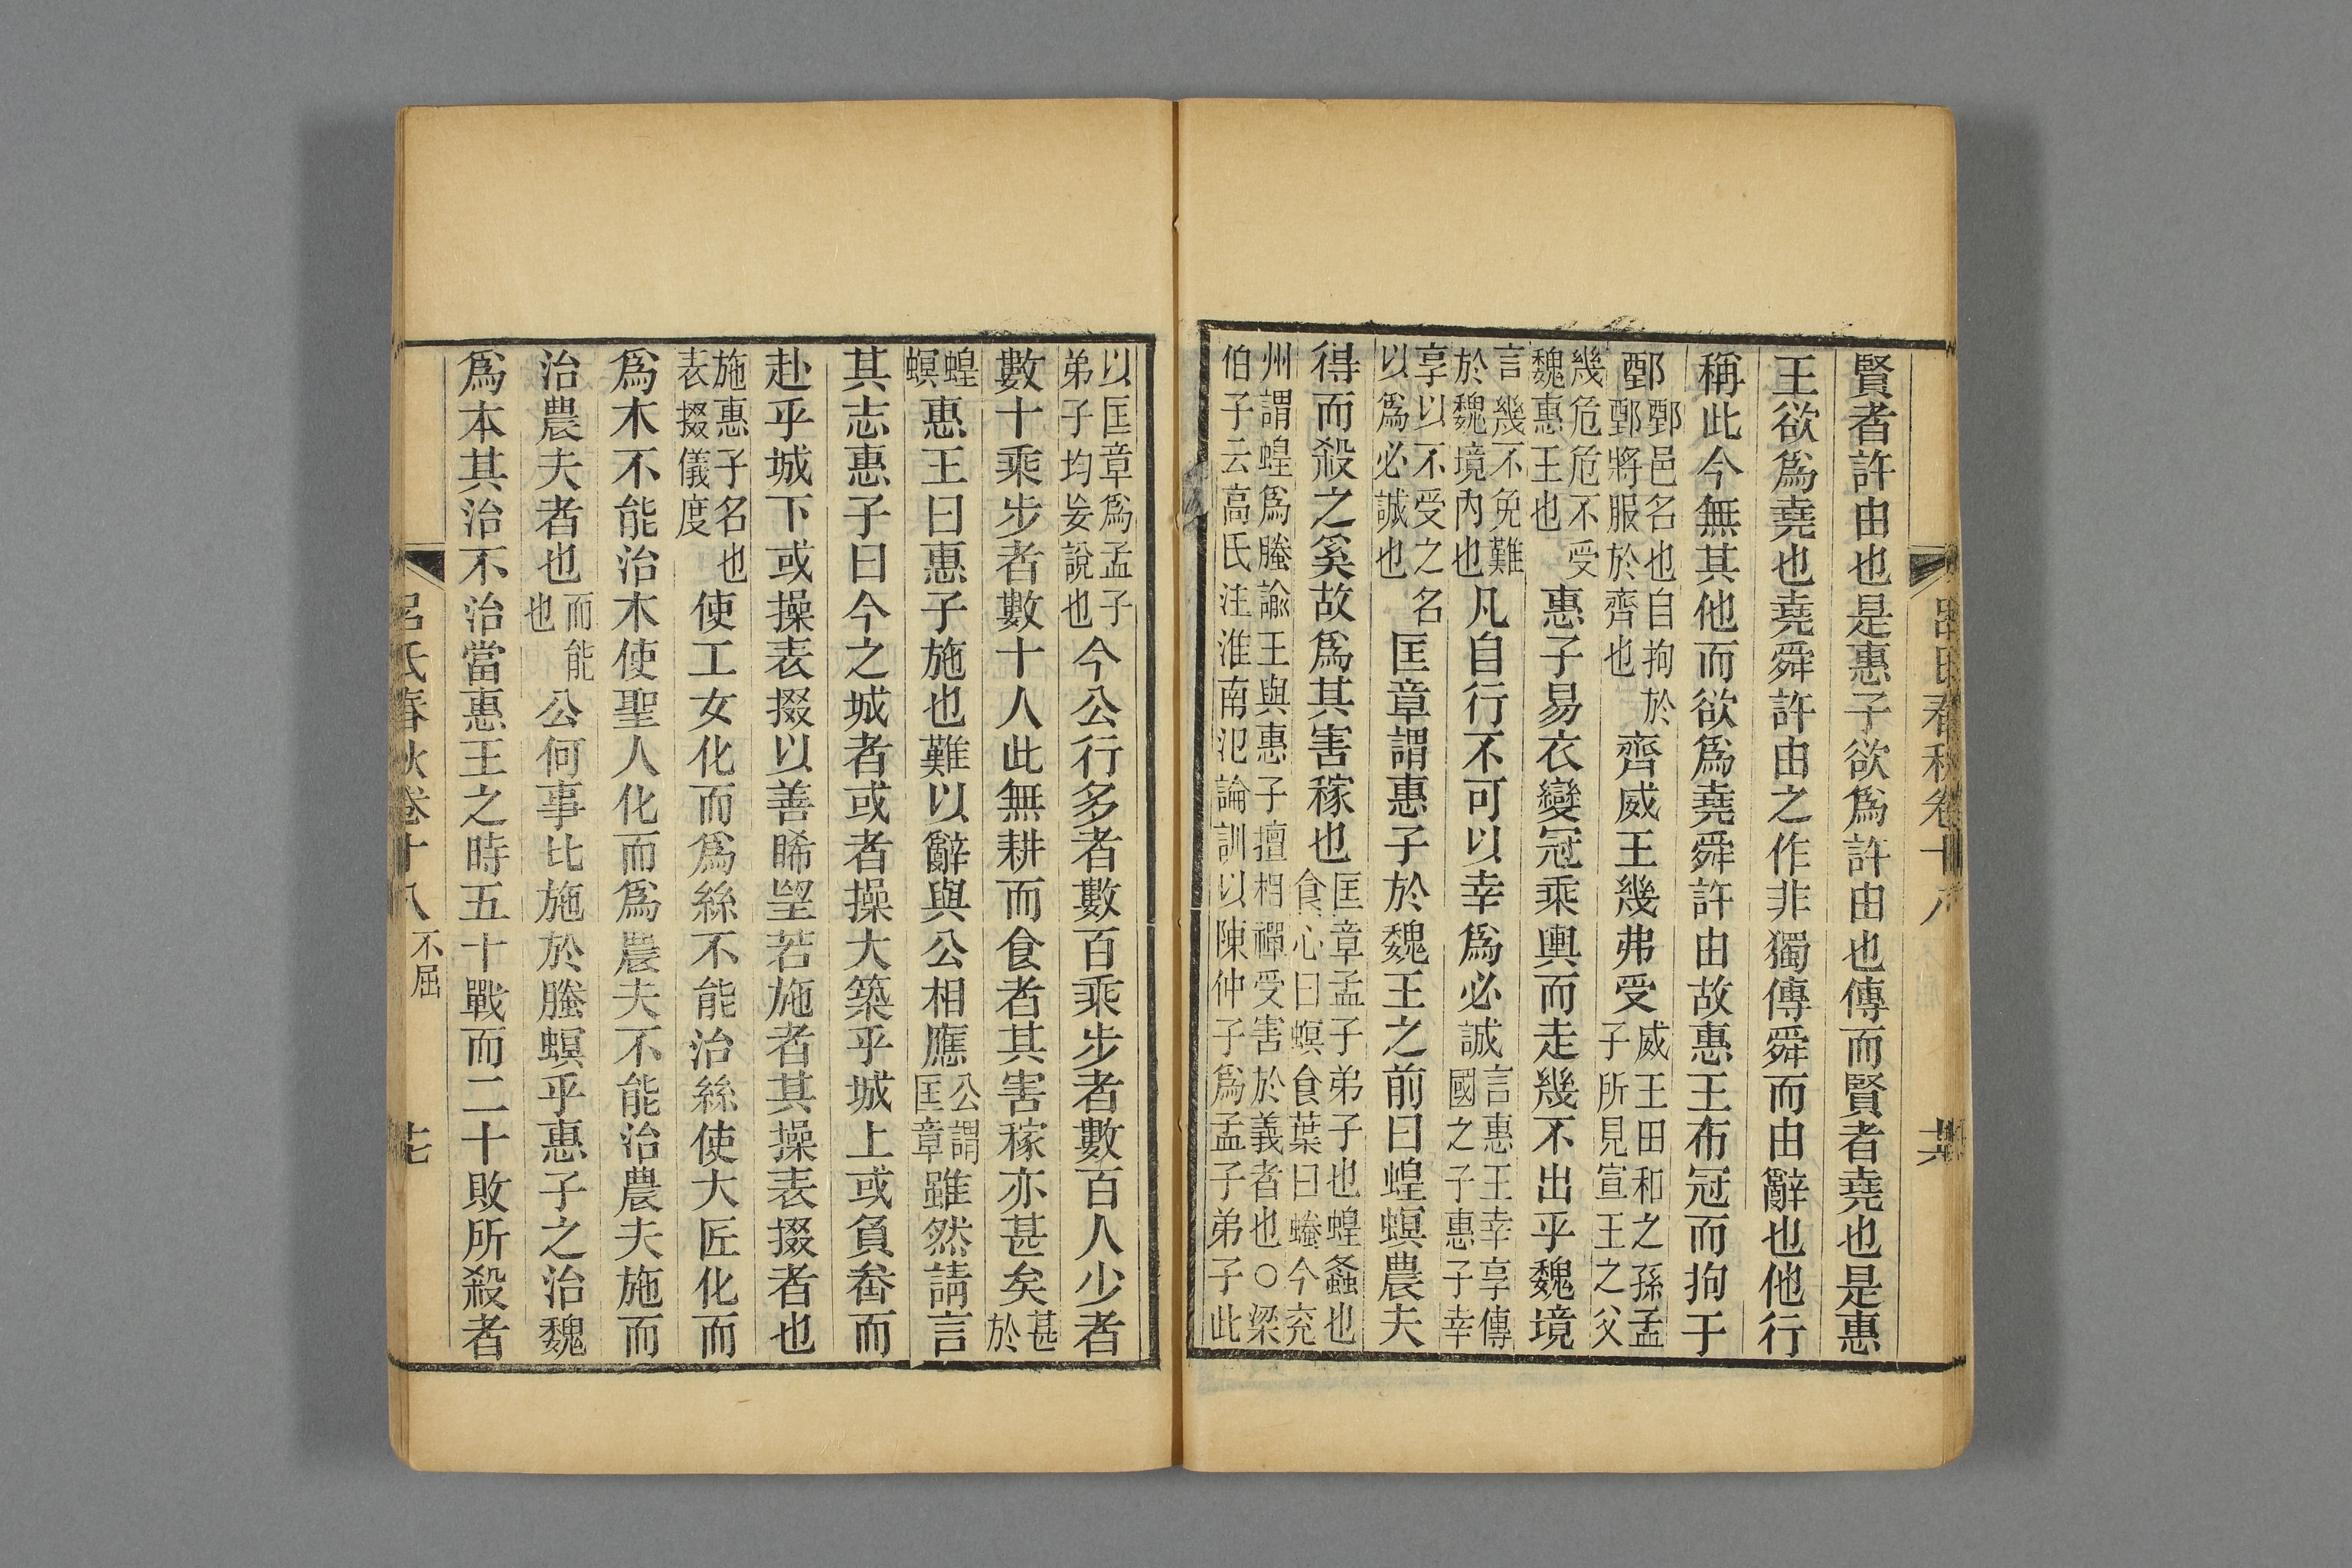 賢者許由也是惠子欲爲許由也傳而賢者堯也是惠
王欲爲堯也堯舜許由之作非獨傳舜而由辭也他行
稱此今無其他而欲爲堯舜許由故惠王布冠而拘于
鄄鄄邑名也自拘於鄄將服於齊也齊威王幾弗受威王田和之孫孟子所見宣王之父
幾危危不受魏惠王也惠子易衣變冠乘輿而走幾不出乎魏境
言幾不免難於魏境內也凡自行不可以幸爲必誠言惠王幸享傳國之子惠子幸
享以不受之名以爲必誠也匡章謂惠子於魏王之前曰蝗螟農夫
得而殺之奚故爲其害稼也匡章孟子弟子也蝗螽也食心曰螟食葉曰䗪今兖
州謂蝗爲螣諭王與惠子擅相禪受害於義者也○梁伯子云高氏注淮南氾論訓以陳仲子爲孟子弟子此
呂氏春秋卷十八
共
以匡章爲孟子弟子均妄說也今公行多者數百乘步者數百人少者
數十乘步者數十人此無耕而食者其害稼亦甚矣甚於
蝗螟惠王曰惠子施也難以辭與公相應公謂匡章雖然請言
其志惠子曰今之城者或者操大築乎城上或負畚而
赴乎城下或操表掇以善睎望若施者其操表掇者也
施惠子名也表掇儀度使工女化而爲絲不能治絲使大匠化而
爲木不能治木使聖人化而爲農夫不能治農夫施而
治農夫者也而能也公何事比施於螣螟乎惠子之治魏
爲本其治不治當惠王之時五十戰而二十敗所殺者
呂氏春秋卷十八 不屈